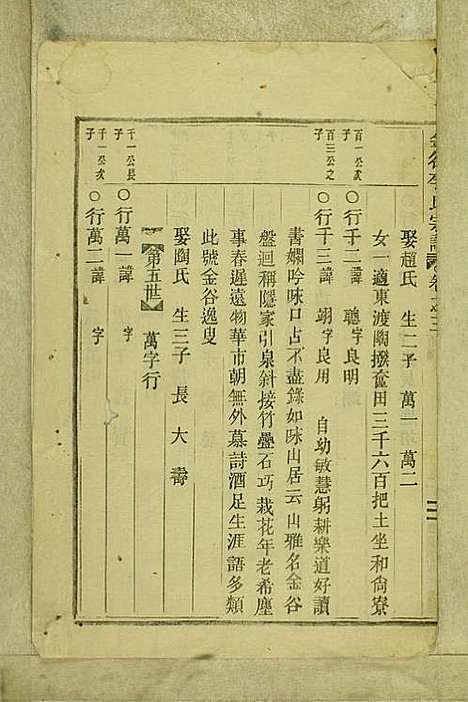 金谷李氏宗譜
娶趙氏 生二子 萬一 萬二
女一適東渡陶撥奩田三千六百把土坐和尚寮
百一公次子
○行千二諱 聰字良明
百三公之子
○行千三諱 翊字良用 自幼敏慧躬耕樂道好讀
書嫻吟咏口占不盡錄如咏山居云山雅名金谷
盤迴稱隱家引泉斜接竹疊石巧栽花年老希塵
事春遲遠物華市朝無外慕詩酒足生涯語多類
此號金谷逸叟
娶陶氏 生三子 長 大 壽
第五世 萬字行
千一公長子
○行萬一諱 字
千一公次子
○行萬二諱 字